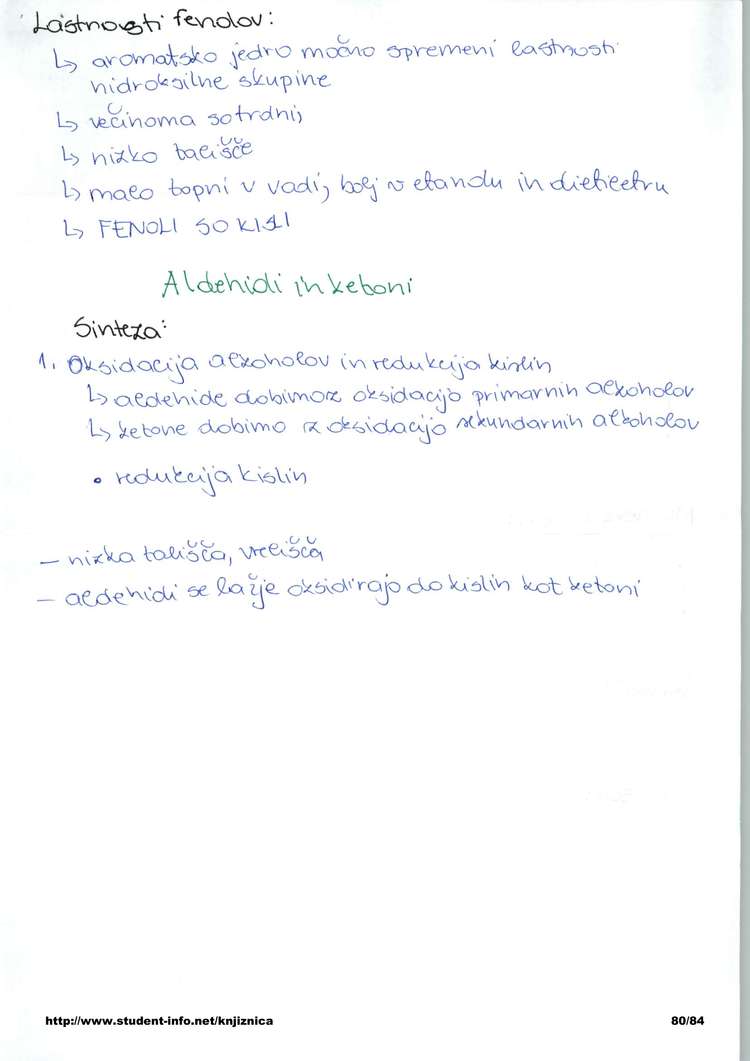 Lastnosti fenolov:
↳ aromatsko jedro močno spremeni lastnosti
hidroksilne skupine
↳ večinoma so trdni,
↳ nizko tališče
↳ malo topni v vodi, bolj v etanolu in dietiletru
↳ FENOLI SO KISLI
Aldehidi in ketoni
Sinteza:
1. Oksidacija alkoholov in redukcija kislin
↳ aldehide dobimo z oksidacijo primarnih alkoholov
↳ ketone dobimo z oksidacijo sekundarnih alkoholov
• redukcija kislin
- nizka tališča, vrelišča
- aldehidi se lažje oksidirajo do kislin kot ketoni
http://www.student-info.net/knjiznica
80/84